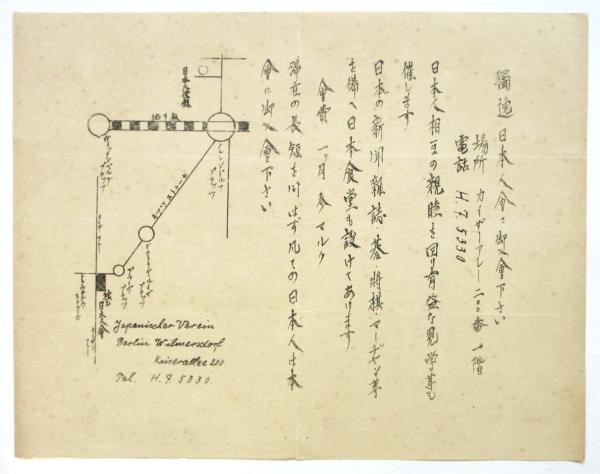 獨逸日本人會に御入會下さい
場所 カイザーアレー二〇〇番一階
電話 H.7.5330
日本人相互の親睦を図り有益な見学等も
催します
日本の新聞雑誌碁将棋マーヂャン等
を備へ日本食堂も設けてあります
會費 一ヶ月 参マルク
滞在の長短を問はず凡ての日本人は本
會に御入會下さい
日本大使館
地下鉄
ノルレンドルフ
プラッツ
プラッツ
日本人會
Japanischer Verein
Berlin Wilmersdorf
Kaiserallee 200.
Tel. H.7.5330.